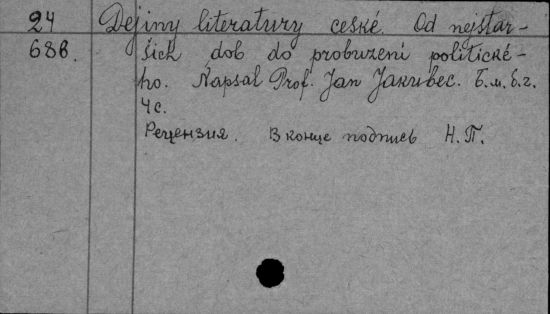 24 Dejiny literatury ceské. Od nejstar-
688. šich dob do probuzeni politické-
ho. Napsal Prof. Jan Jakubec. Б.м.б.г.
4с.
Рецензия. В конце подпись Н.П.